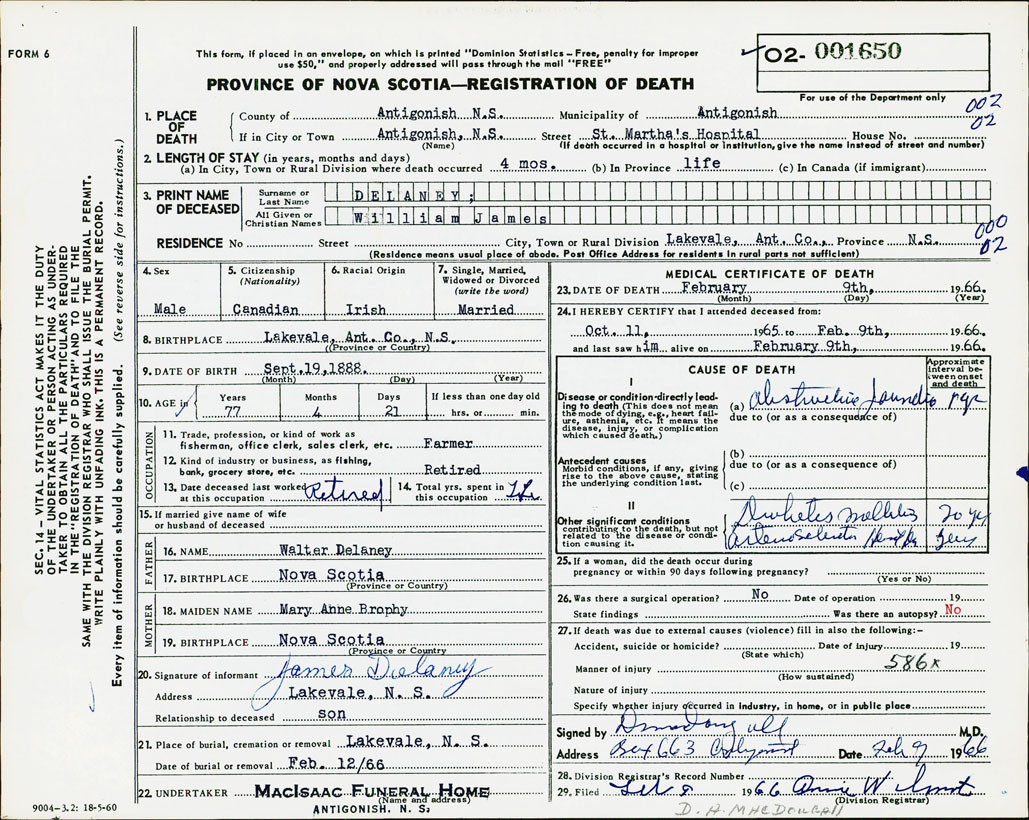 FORM 6
This form, if placed in an envelope, on which is printed "Dominion Statistics – Free, penalty for improper
use $50," and properly addressed will pass through the mail "FREE"
02- 001650
PROVINCE OF NOVA SCOTIA—REGISTRATION OF DEATH
For use of the Department only
002
02
1. PLACE OF DEATH
County of Antigonish N.S. Municipality of Antigonish
If in City or Town Antigonish, N.S. Street St. Martha's Hospital House No.
(Name) (If death occurred in a hospital or institution, give the name instead of street and number)
2. LENGTH OF STAY (in years, months and days)
(a) In City, Town or Rural Division where death occurred 4 mos. (b) In Province life (c) In Canada (if immigrant)
3. PRINT NAME OF DECEASED
Surname or Last Name DELANEY;
All Given or Christian Names William James
000
02
RESIDENCE No Street City, Town or Rural Division Lakevale, Ant. Co., Province N.S.
(Residence means usual place of abode. Post Office Address for residents in rural parts not sufficient)
4. Sex
Male
5. Citizenship
(Nationality)
Canadian
6. Racial Origin
Irish
7. Single, Married,
Widowed or Divorced
(write the word)
Married
8. BIRTHPLACE Lakevale, Ant. Co., N.S.
(Province or Country)
9. DATE OF BIRTH Sept.19,1888.
(Month) (Day) (Year)
10. AGE in
Years Months Days If less than one day old
77 4 21 hrs. or min.
OCCUPATION
11. Trade, profession, or kind of work as
fisherman, office clerk, sales clerk, etc. Farmer
12. Kind of industry or business, as fishing,
bank, grocery store, etc. Retired
13. Date deceased last worked
at this occupation Retired
14. Total yrs. spent in
this occupation
15. If married give name of wife
or husband of deceased
FATHER
16. NAME Walter Delaney
17. BIRTHPLACE Nova Scotia
(Province or Country)
MOTHER
18. MAIDEN NAME Mary Anne Brophy
19. BIRTHPLACE Nova Scotia
(Province or Country
20. Signature of informant James Delaney
Address Lakevale, N. S.
Relationship to deceased son
21. Place of burial, cremation or removal Lakevale, N. S.
Date of burial or removal Feb. 12/66
22. UNDERTAKER MacIsaac Funeral Home
(Name and address)
ANTIGONISH. N. S.
MEDICAL CERTIFICATE OF DEATH
23. DATE OF DEATH February 9th, 1966.
(Month) (Day) (Year)
24. I HEREBY CERTIFY that I attended deceased from:
Oct. 11, 1965 to Feb. 9th, 1966.
and last saw him alive on February 9th, 1966.
CAUSE OF DEATH
Approximate
interval be-
tween onset
and death
I
Disease or condition directly lead-
ing to death (This does not mean
the mode of dying, e.g., heart fail-
ure, asthenia, etc. It means the
disease, injury, or complication
which caused death.)
(a) Obstructive Jaundice
due to (or as a consequence of)
Antecedent causes
Morbid conditions, if any, giving
rise to the above cause, stating
the underlying condition last.
(b)
due to (or as a consequence of)
(c)
II
Other significant conditions
contributing to the death, but not
related to the disease or condi-
tion causing it.
Diabetes Mellitus 20 yr
25. If a woman, did the death occur during
pregnancy or within 90 days following pregnancy?
(Yes or No)
26. Was there a surgical operation? No Date of operation 19
State findings Was there an autopsy? No
27. If death was due to external causes (violence) fill in also the following:–
Accident, suicide or homicide? Date of injury 19
(State which)
Manner of injury 586x
(How sustained)
Nature of injury
Specify whether injury occurred in industry, in home, or in public place
Signed by M.D.
Address Box 663 Date Feb 9 1966
28. Division Registrar's Record Number
29. Filed 1966
(Division Registrar)
D. A. MACDOUGALL
SEC. 14 – VITAL STATISTICS ACT MAKES IT THE DUTY
OF THE UNDERTAKER OR PERSON ACTING AS UNDER-
TAKER TO OBTAIN ALL THE PARTICULARS REQUIRED
IN THE "REGISTRATION OF DEATH" AND TO FILE THE
SAME WITH THE DIVISION REGISTRAR WHO SHALL ISSUE THE BURIAL PERMIT.
WRITE PLAINLY WITH UNFADING INK. THIS IS A PERMANENT RECORD.
Every item of information should be carefully supplied. (See reverse side for instructions.)
9004-3.2: 18-5-60